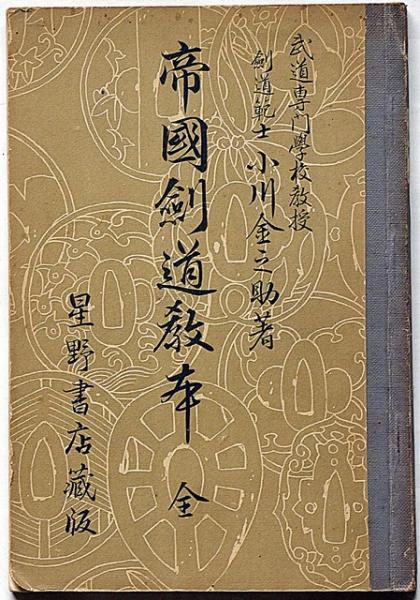 武道専門學校教授
劍道範士 小川金之助著
帝國劍道教本 全
星野書店藏版